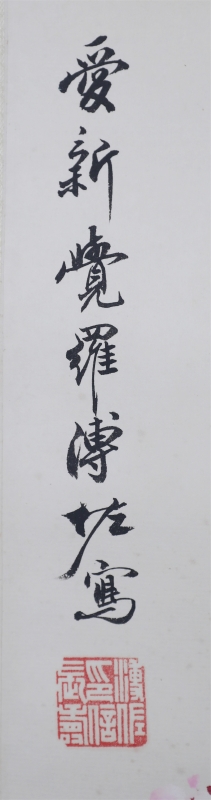 愛新覺羅溥佐寫
溥佐
印信